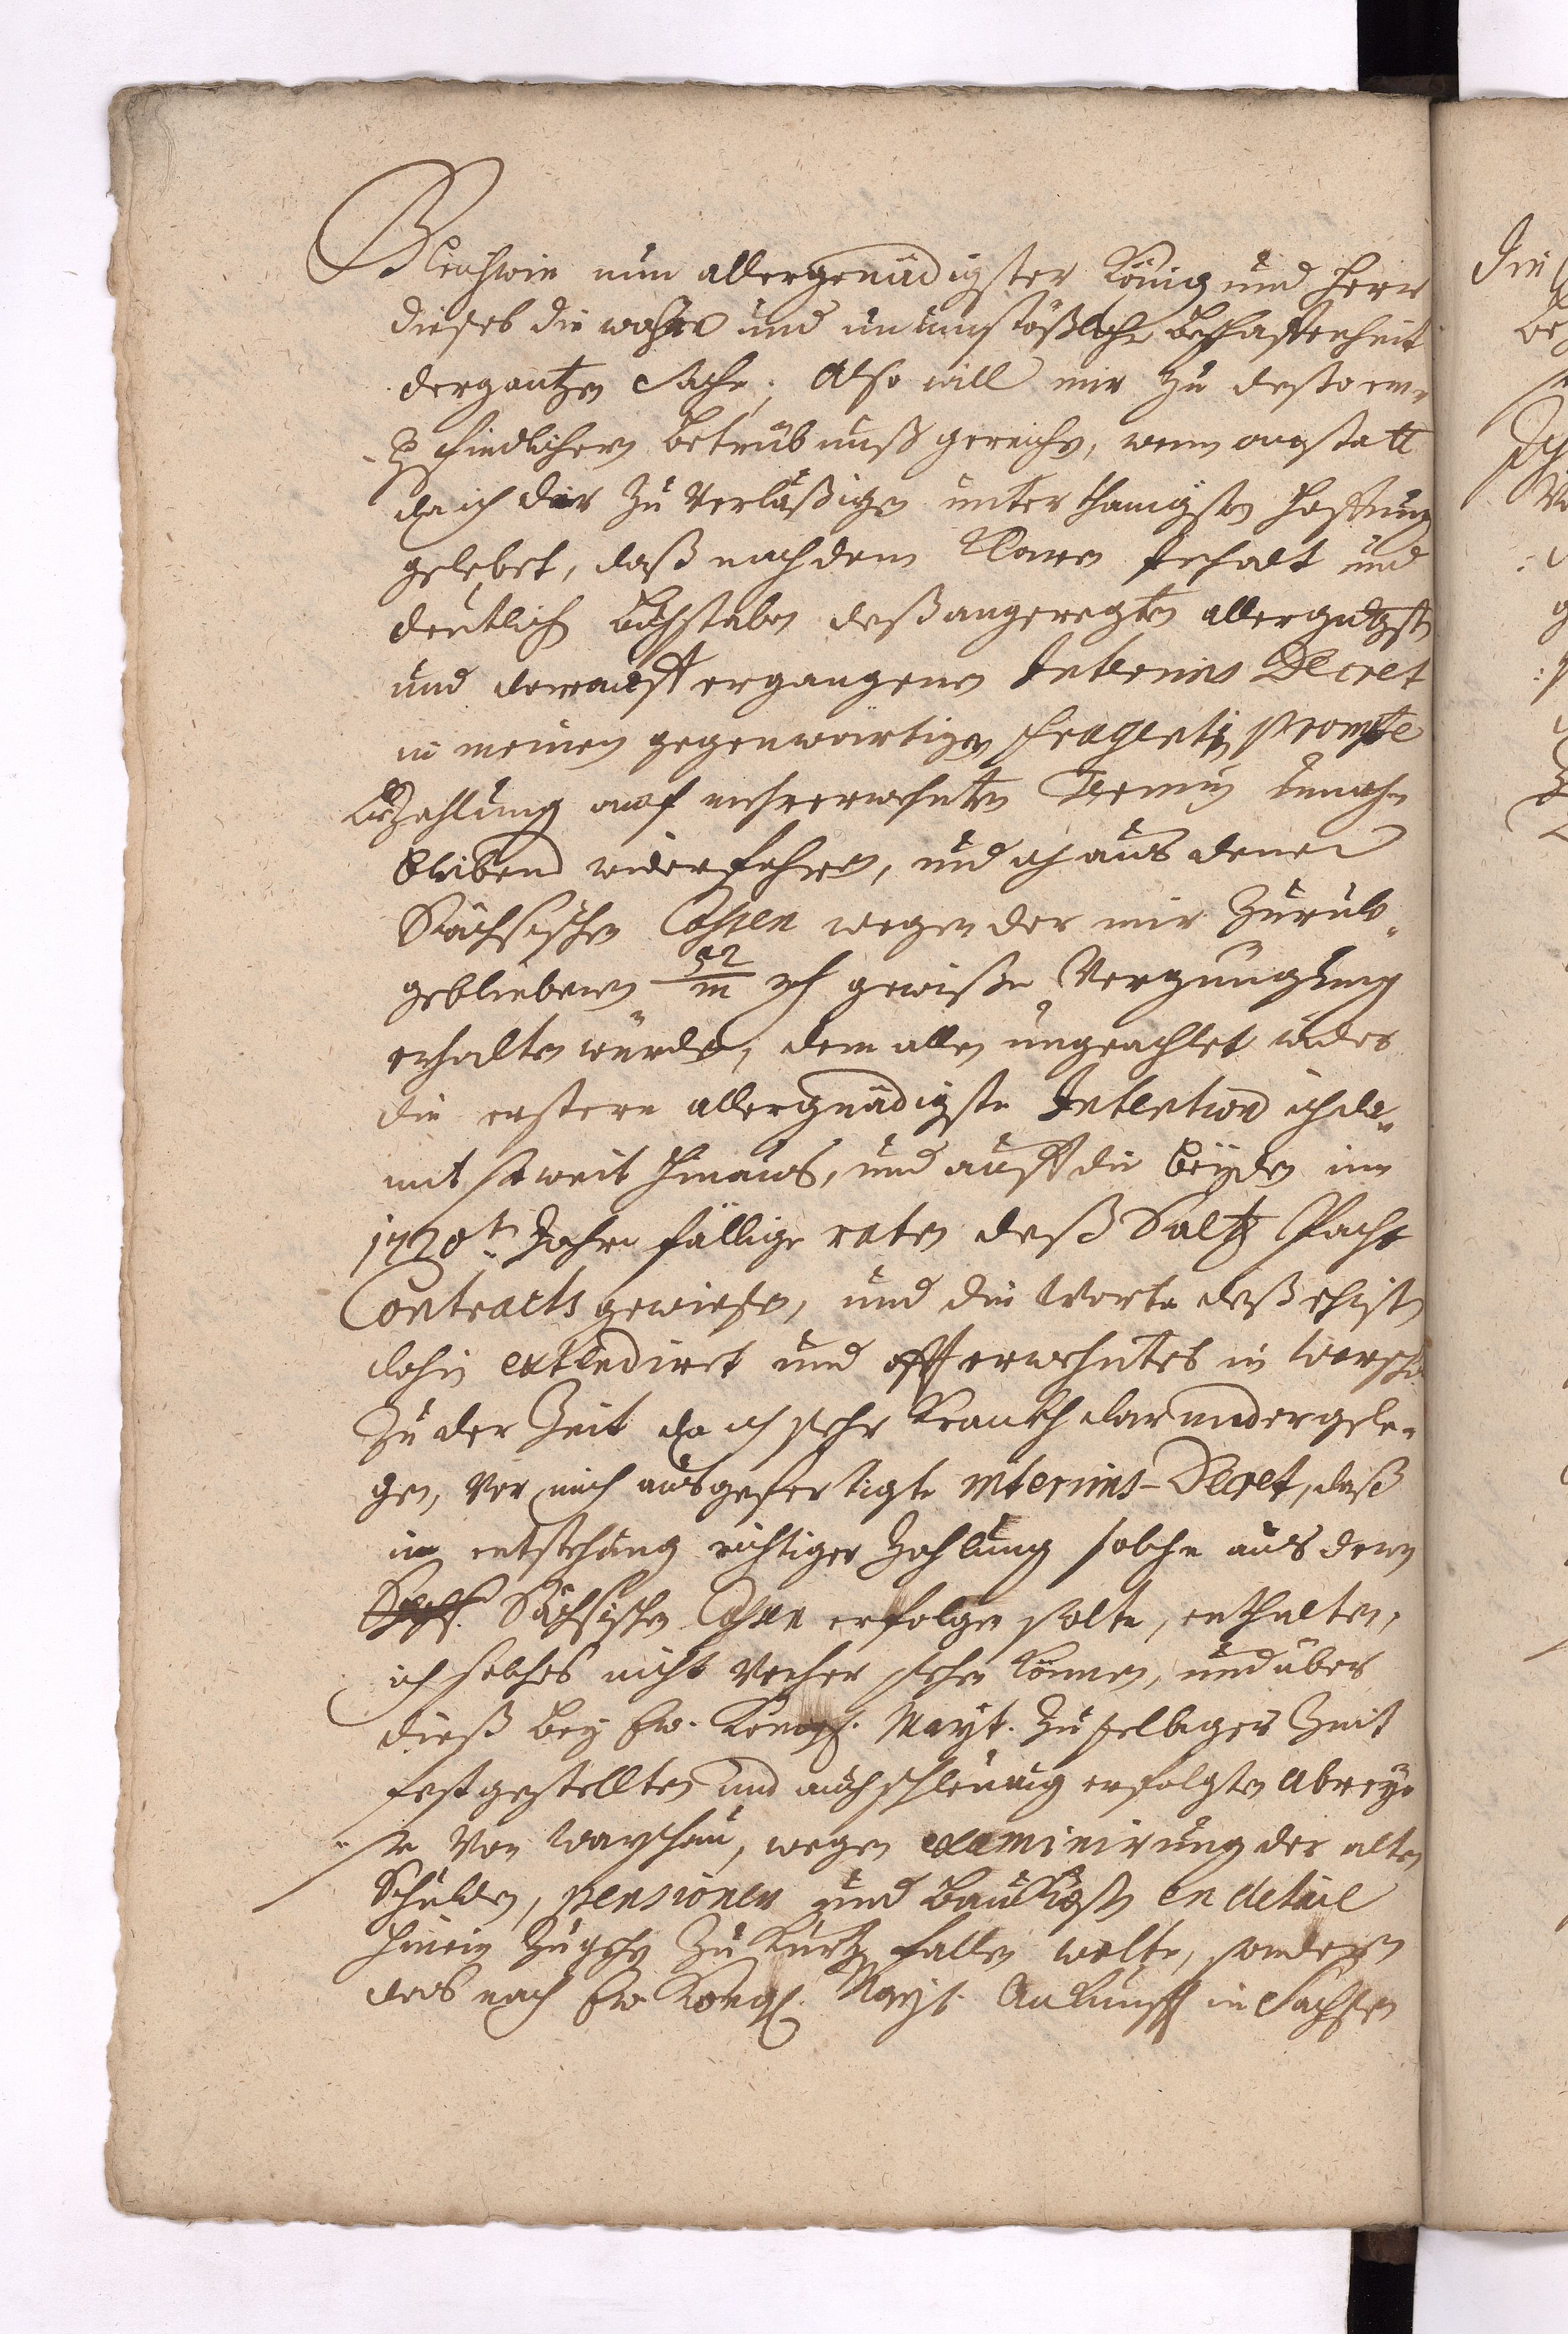 Gleichwie nun allergenädigster König und Herr
dieses die wahre und unumstößliche Beschaffenheit
der gantzen Sache; Also will mir zu desto em-
pfindlichern Betrübnuß gereichen, wenn anstatt
da ich der zu Verläßigen unterthänigsten Hoffnung
gelebet, daß nach dem klaren Inhalt und
deutlich Buchstaben deß angeregten allergndgst
und darauff ergangenen Interims Decret
in meinen gegenwärtigen prompte
Bezahlung auf mehrerwehnten Termin
bleibend wiederfahren, und ich aus denen
Sächsischen Cassen wegen der mir zurück-
gebliebenen 52/m rh gewiße Vergnügung
erhalten würde, dem allen ungeachtet wider
die erstere allergnädigste Intention ich da-
mit so weit hinaus, und auff die beyden im
1720t. Jahre fällige raten deß Saltz Pacht
Contracts gewiesen, und die Worte deß
dahin extendiret und offt erwehntes in Warschau
zu der Zeit da ich sehr kranckh darnieder gele-
gen, vor mich ausgefertigte Interims-Decret, daß
in entstehung richtiger Zahlung solche aus denen
Sächsischen Cassen erfolgen solte, enthalten,
ich solches nicht vorher sehen können, und über
dieß bey Ew. Königl. Mayt. zu selbiger Zeit
festgestellten und auch schleunig erfolgten Abrey-
se von Warschau, wegen examinirung der alten
Schulden, pensionen und Baukosten en detail
hinein zugehen zu kurtz fallen wolte, sondern
dies nach Ew. Königl. Mayt. Ankunfft in Sachsen